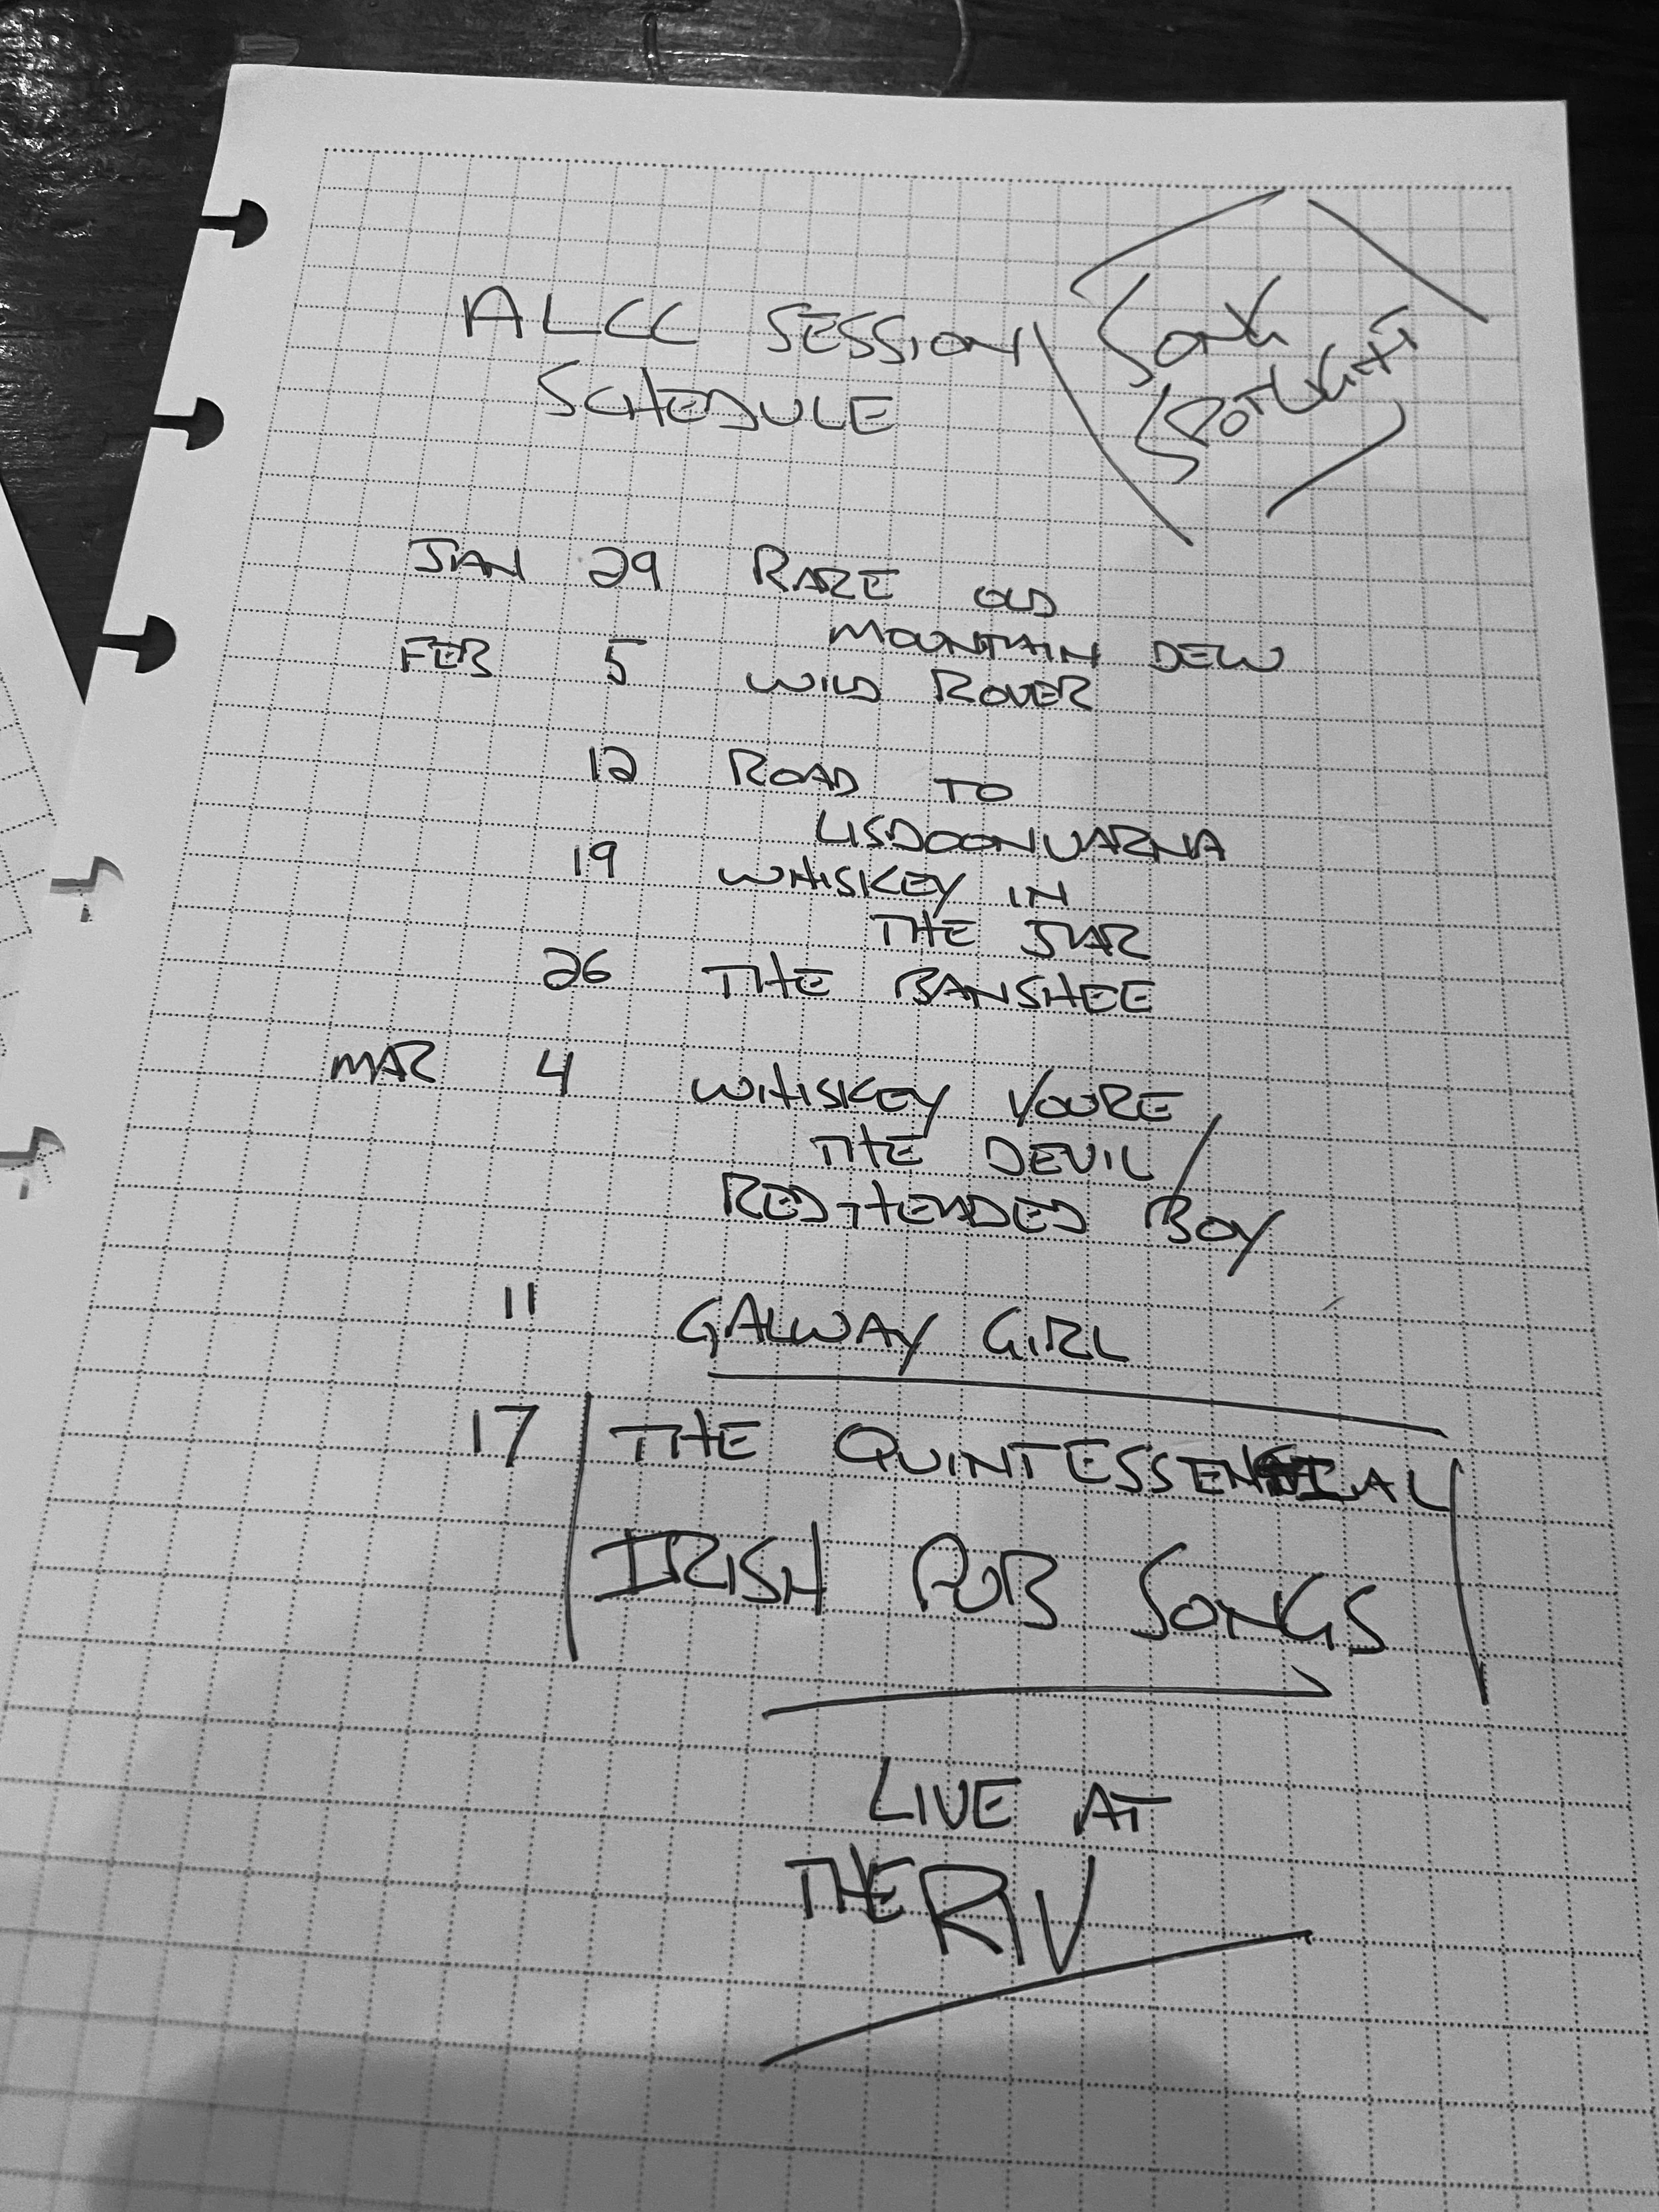 ALCC SESSION
SCHEDULE
SONG
SPOTLIGHT
JAN 29 RARE OLD
MOUNTAIN DEW
FEB 5 WILD ROVER
12 ROAD TO
LISDOONVARNA
19 WHISKEY IN
THE JAR
26 THE BANSHEE
MAR 4 WHISKEY YOURE
THE DEVIL/
RED-HEADED BOY
11 GALWAY GIRL
17 THE QUINTESSENTIAL
IRISH PUB SONGS
LIVE AT
THE RIV